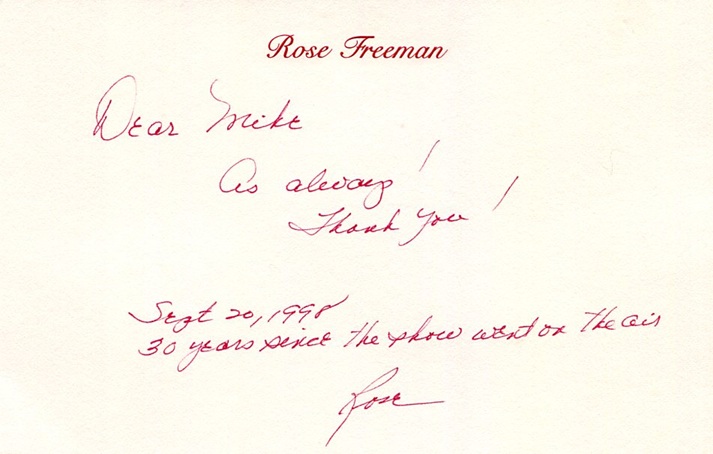 Rose Freeman
Dear Mike
As always!
Thank you!
Sept 20, 1998
30 years since the show went on the air
Rose